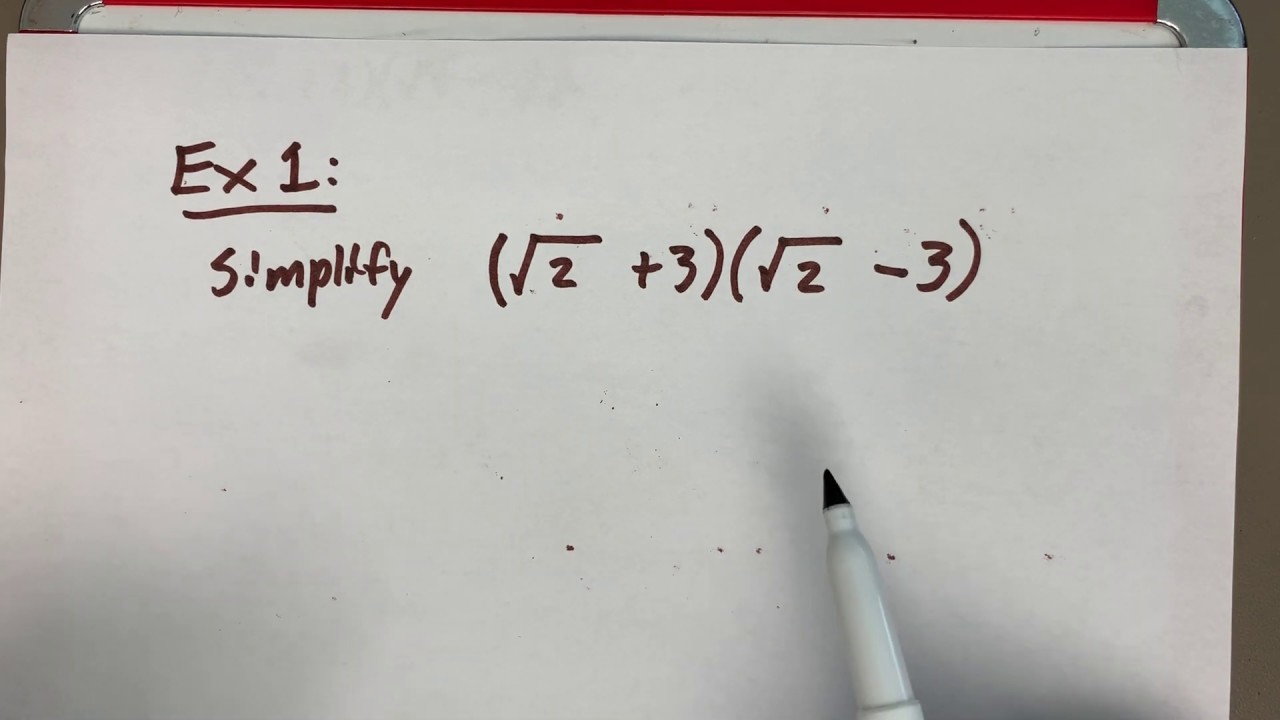 Ex 1:
Simplify (√2 +3)(√2 -3)